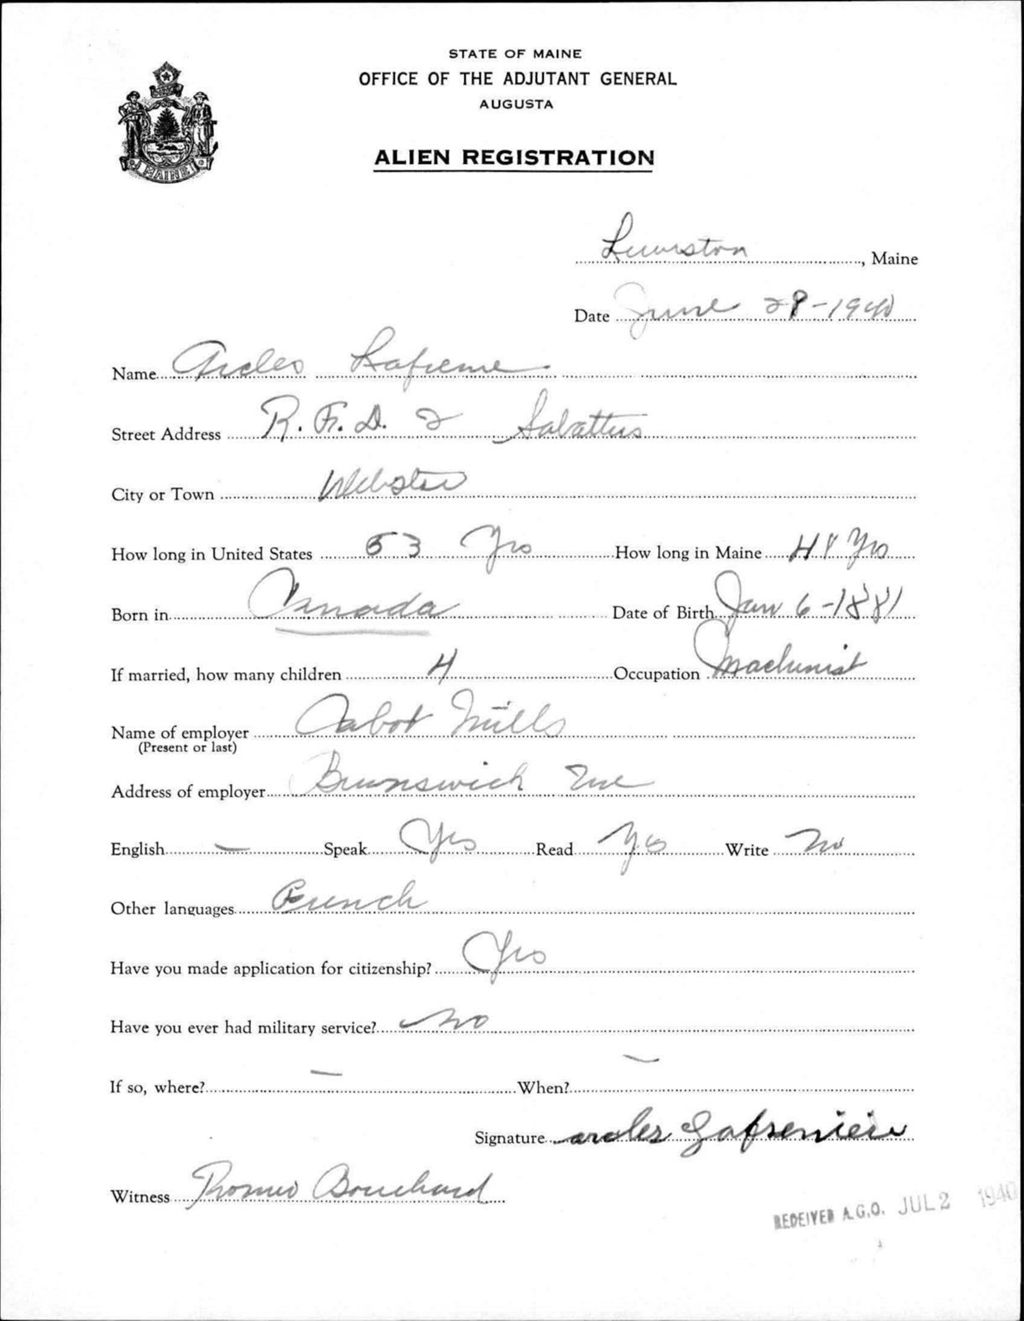 STATE OF MAINE
OFFICE OF THE ADJUTANT GENERAL
AUGUSTA
ALIEN REGISTRATION
MAINE
Lewiston, Maine
Date June 29-1940
Name Arcles Lafreme
Street Address R.F.D. 2 Sabattus
City or Town Webster
How long in United States 53 Yrs How long in Maine 48 Yrs
Born in Canada Date of Birth Jan 6-1881
If married, how many children 4 Occupation Machinist
Name of employer Cabot Mills
(Present or last)
Address of employer Brunswick Me
English — Speak Yes Read Yes Write No
Other languages French
Have you made application for citizenship? Yes
Have you ever had military service? No
If so, where? — When? —
Signature arcles Lafreniere
Witness Romeo Bouchard
RECEIVED A.G.O. JUL 2 1940